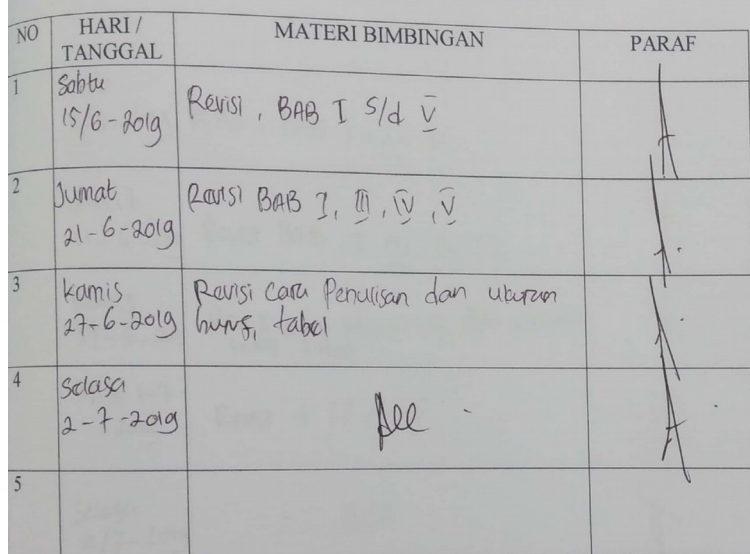 NO HARI / TANGGAL MATERI BIMBINGAN PARAF
1 Sabtu
15/6-2019 Revisi, BAB I s/d V
2 Jumat
21-6-2019 Revisi BAB I, III, IV, V
3 Kamis Revisi cara Penulisan dan ukuran
27-6-2019 huruf, tabel
4 Selasa
2-7-2019 Acc
5